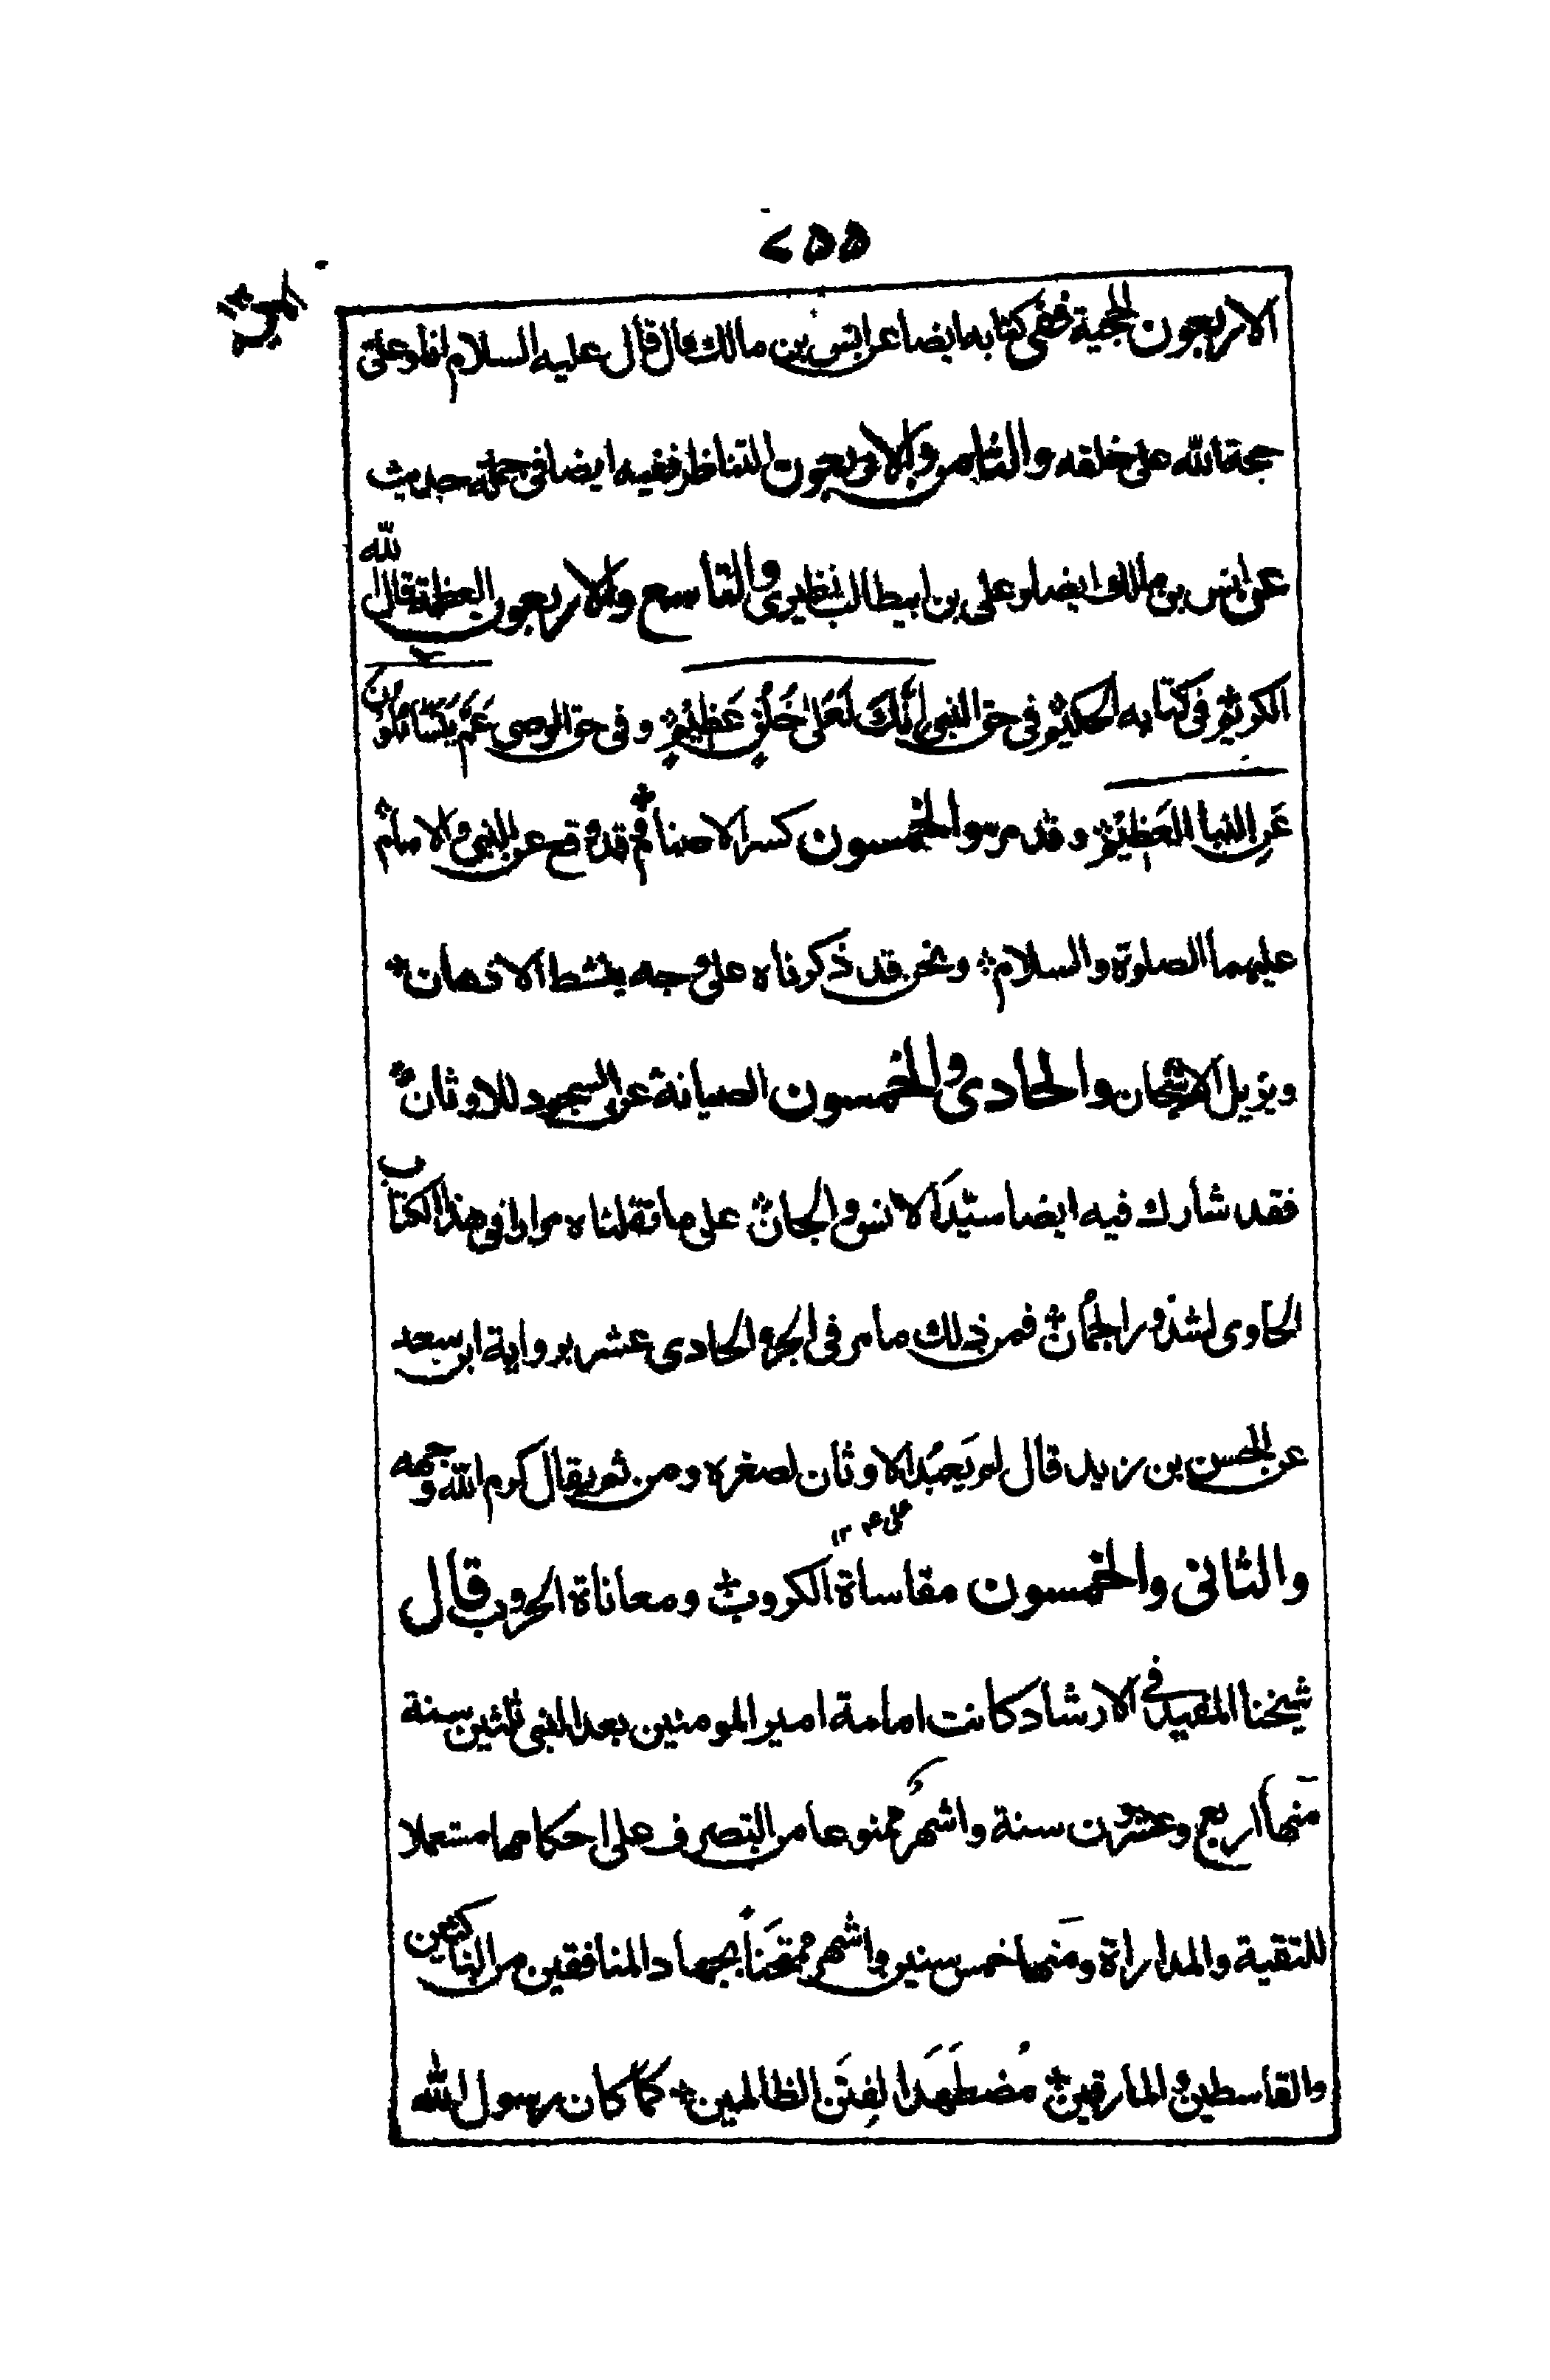 ٢٥٥
الاربعون الحجية ففى كتابه ايضا عن انس بن مالك قال قال عليه السلام انا وعلى
حجة الله على خلقه والثامن والاربعون التناظر ففيه ايضا فى جملة حديث
عن انس بن مالك ايضا وعلى بن ابيطالب نظيرى والتاسع والاربعون العظمة قال الله
الكريم فى كتابه الحكيم فى حق النبى إنَّكَ لَعَلىٰ خُلُقٍ عَظِيْمٍ وفى حق الوصى عَمَّ يَتَسَائَلُونَ
عَنِ النبا العَظِيْمِ وقد مر والخمسون كسر الاصنام قد وقع عن النبى والامام
عليهما الصلوة والسلام ونحن قد ذكرناه على وجه ينشط الاذهان
ويزيل الاشجان والحادى والخمسون الصيانة عن السجود للاوثان
فقد شارك فيه ايضا سيّدَ الانس والجان على ما نقلناه مرارا فى هذا الكتاب
الحاوى لشذور الجُمان فمن ذلك ما مر فى الجزو الحادى عشر برواية ابن سعد
عن الحسن بن زيد قال لم يَعبُد الاوثان لصغره ومن ثم يقال كرم الله وجهه
والثانى والخمسون مقاساة الكروب ومعاناة الحروب قال
شيخنا المفيد فى الارشاد كانت امامة امير المومنين بعد النبى ثلثين سنة
منها اربع وعشرون سنة واشهُر ممنوعا من التصرف على احكامها مستعملا
للتقية والمداراة ومنها خمس سنين واشهر ممتحَنًا بجهاد المنافقين من الناكثين
والقاسطين والمارقين مُضطَهَدا لِفِتَن الظالمين كما كان رسول الله